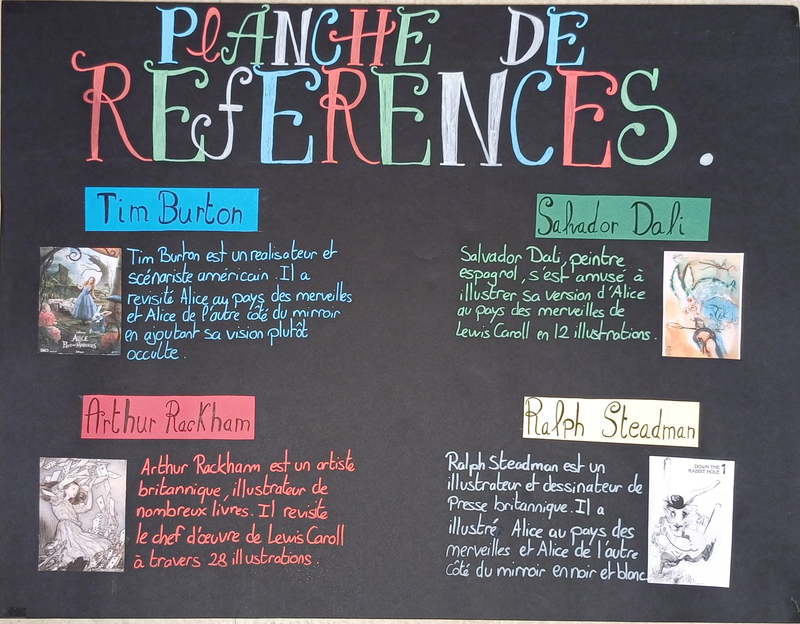 PLANCHE DE
REFERENCES.
Tim Burton
Tim Burton est un realisateur et
scénariste américain. Il a
revisité Alice au pays des merveilles
et Alice de l'autre côté du mirroir
en ajoutant sa vision plutôt
occulte.
ALICE
Salvador Dali
Salvador Dali, peintre
espagnol, s'est amusé à
illustrer sa version d'Alice
au pays des merveilles de
Lewis Caroll en 12 illustrations.
Arthur Rackham
Arthur Rackham est un artiste
britannique, illustrateur de
nombreux livres. Il revisite
le chef d'œuvre de Lewis Caroll
à travers 28 illustrations.
Ralph Steadman
Ralph Steadman est un
illustrateur et dessinateur de
Presse britannique. Il a
illustré Alice au pays des
merveilles et Alice de l'autre
côté du mirroir en noir et blanc
DOWN THE 1
RABBIT HOLE